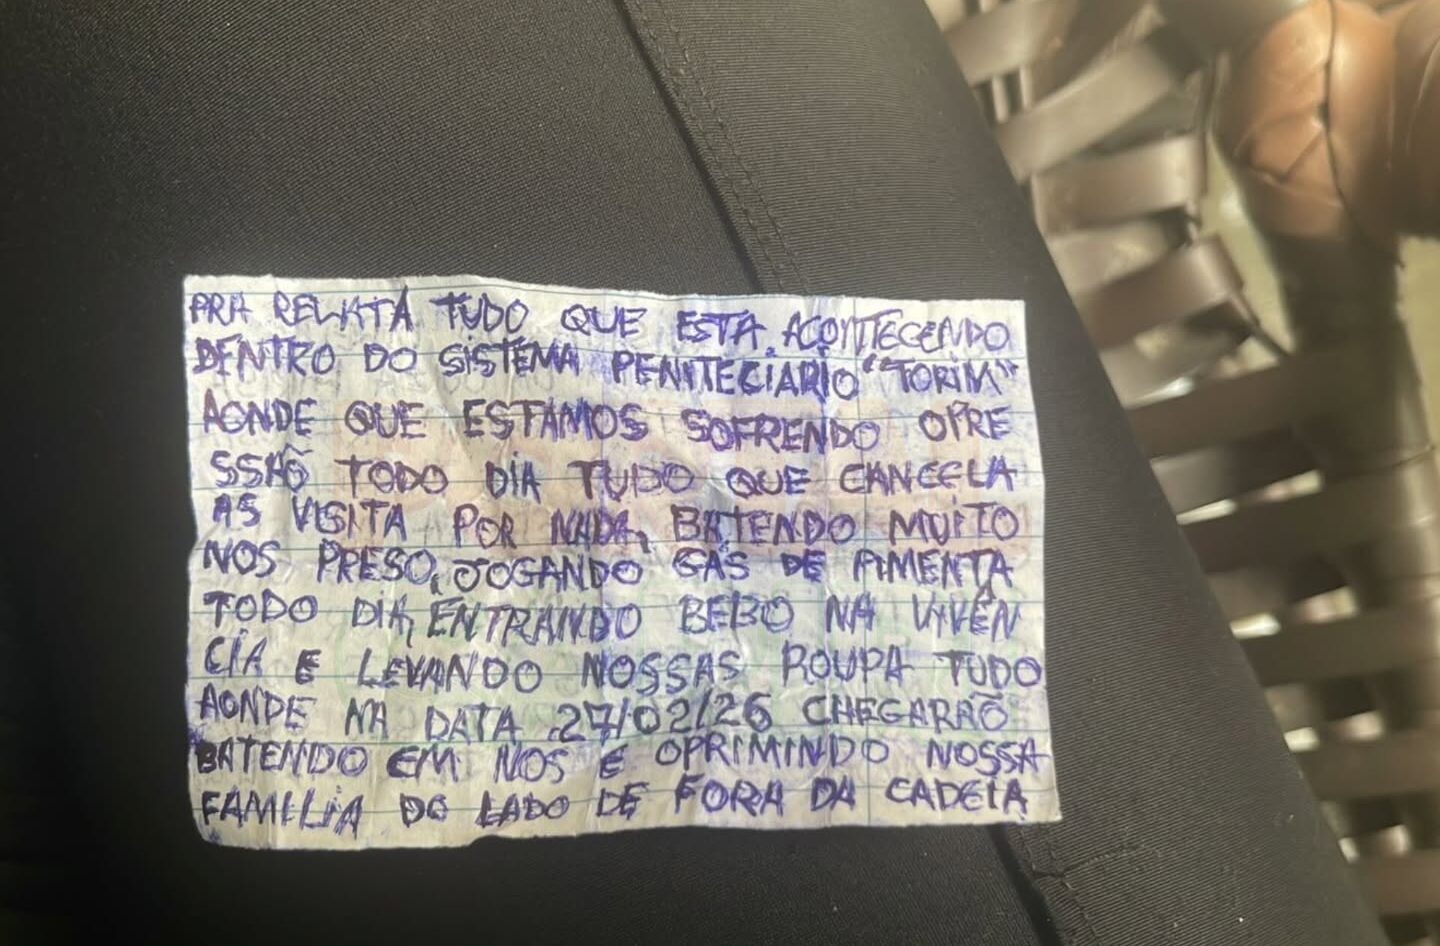 PRA RELATA TUDO QUE ESTA ACONTECENDO
DENTRO DO SISTEMA PENITECIARIO "TORIM"
AONDE QUE ESTAMOS SOFRENDO OPRE
SSÃO TODO DIA TUDO QUE CANCELA
AS VISITA POR NADA, BATENDO MUITO
NOS PRESO, JOGANDO GAS DE PIMENTA
TODO DIA, ENTRANDO BEBO NA VIVÊN
CIA E LEVANDO NOSSAS ROUPA TUDO
AONDE NA DATA 27/02/26 CHEGARRÃO
BATENDO EM NOS E OPRIMINDO NOSSA
FAMILIA DO LADO DE FORA DA CADEIA